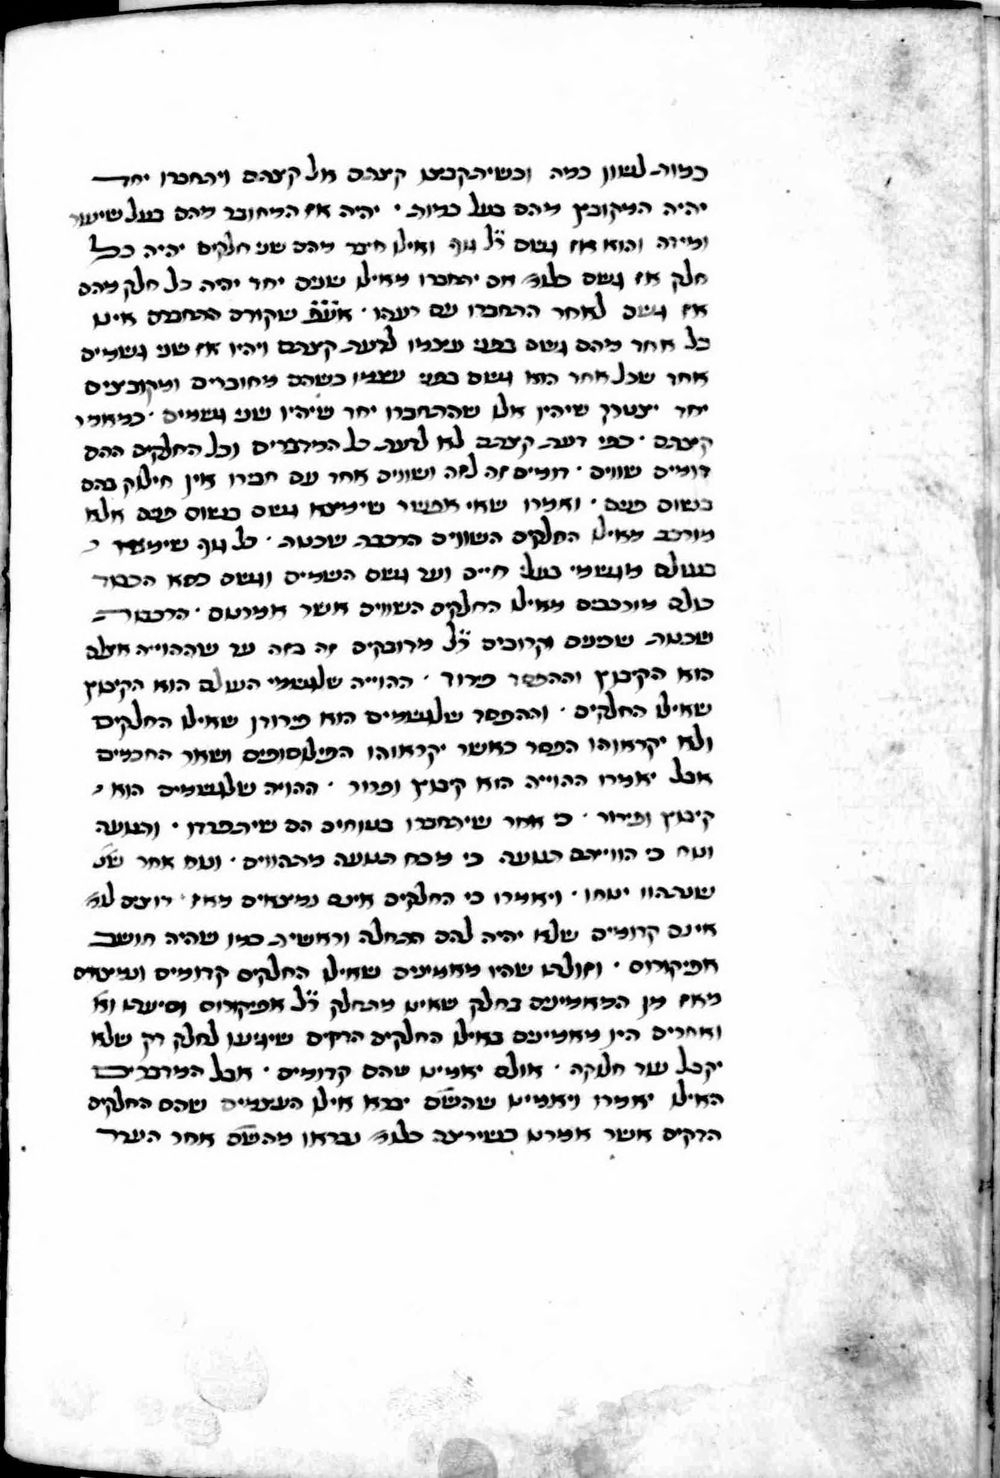 כמות לשון כמה וכשיתקבצו קצתם אל קצתם ויתחברו יחד
יהיה המקובץ מהם בעל כמות · יהיה אז המחובר מהם בעל שיעור
ומידה והוא אז גשם ר״ל גוף ואילו חובר מהם שני חלקים יהיה כל
חלק אז גשם כלומ׳ אם יתחברו מאילו שנים יחד יהיה כל חלק מהם
אז גשם לאחר התחברו עם רעהו · שקודם התחברם אינו
כל אחד מהם גשם בפני עצמו לדעת קצתם ויהיו אז שני גשמים
אחר שכל אחד הוא גשם בפני עצמו כשהם מחוברים ומקובצים
יחד יצטרך שיהיו אלו שהתחברו יחד שיהיו שני גשמים · כמאמר
קצתם · כפי דעת קצתם לא לדעת כל המדברים וכל החלקים ההם
דומים שווים · דומים זה לזה ושווים אחד עם חבירו אין חילוק בהם
בשום פנים · ואמרו שאי אפשר שימצא גשם בשום פנים אלא
מורכב מאילו החלקים השווים הרכבת שכנות · כל גוף שימצא
בעולם מגשמי בעלי חיים ועד גשם השמים וגשם כסא הכבוד
כולם מורכבים מאילו החלקים השווים אשר אמרנום · הרכבת
שכנות שכנים וקרובים ר״ל מדובקים זה בזה עד שההוייה אצלם
הוא הקיבוץ וההפסד פירוד · ההוייה שלגשמי העולם הוא הקיבוץ
שאילו החלקים · וההפסד שלגשמים הוא פירודן שאילו החלקים
ולא יקראוהו הפסד כאשר יקראוהו הפילוסופים ושאר החכמים
אבל יאמרו ההוייה הוא קיבוץ ופרוד · ההויה שלגשמים הוא
קיבוץ ופירוד · כי אחר שיתחברו בטוחים הם שיתפרדו · והנועה
ונוח כי הווייתם תנועה כי מכח תנועה מתהווים · ונוח אחר
שנתהוו ינוחו · ויאמרו כי החלקים אינם נמצאים מאז · רוצים לומ׳
אינם קדומים שלא יהיה להם תחלה וראשית כמו שהיה חושב
אפיקורוס · וזולתו שהיו מאמינים שאילו החלקים קדומים ונמצאים
מאז מן המאמינים בחלק שאינו מתחלק ר״ל אפיקורוס וסיעתו
ואחרים היו מאמינים באילו החלקים הדקים שיגיעו לחלק דק שלא
יקבל עוד חלוקה · אולם יאמינו שהם קדומים · אבל המדברים
האילו יאמרו ויאמינו שהשם יברא אילו העצמים שהם החלקים
הדקים אשר אמרנו כשירצה כלומ׳ נבראו מהשם אחר העדר